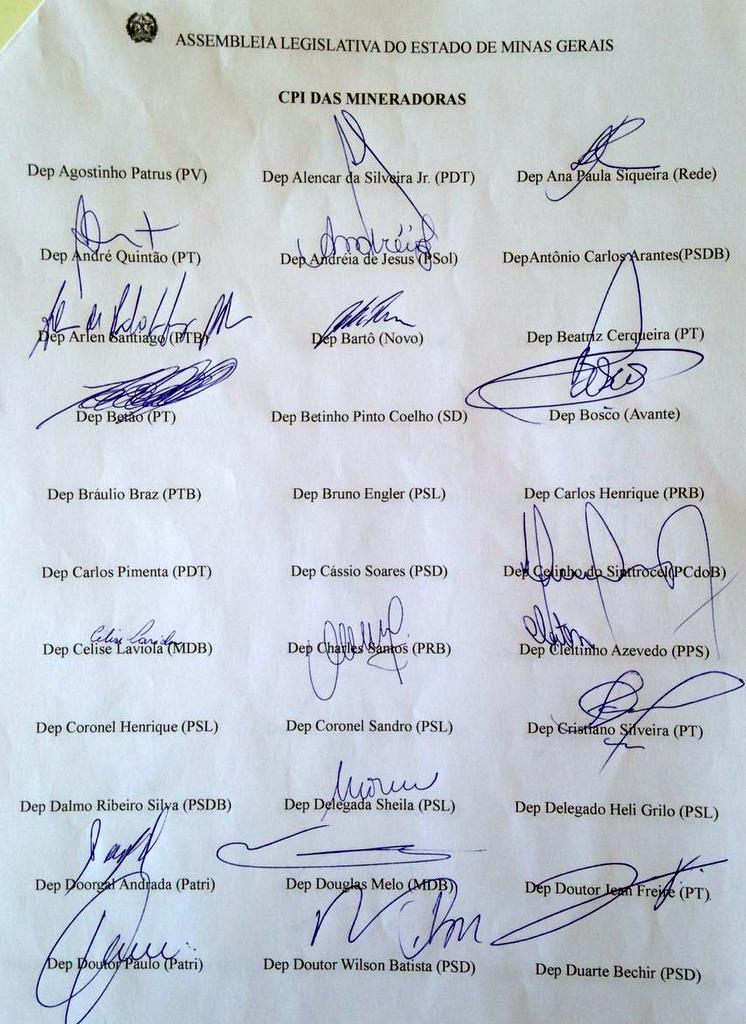 ASSEMBLEIA LEGISLATIVA DO ESTADO DE MINAS GERAIS
CPI DAS MINERADORAS
Dep Agostinho Patrus (PV) Dep Alencar da Silveira Jr. (PDT) Dep Ana Paula Siqueira (Rede)
Dep André Quintão (PT) Dep Andréia de Jesus (PSol) Dep Antônio Carlos Arantes(PSDB)
Andréia
Dep Arlen Santiago (PTB) Dep Bartô (Novo) Dep Beatriz Cerqueira (PT)
Bosco
Dep Betão (PT) Dep Betinho Pinto Coelho (SD) Dep Bosco (Avante)
Dep Bráulio Braz (PTB) Dep Bruno Engler (PSL) Dep Carlos Henrique (PRB)
Dep Carlos Pimenta (PDT) Dep Cássio Soares (PSD) Dep Celinho do Sinttrocel(PCdoB)
Celise Laviola
Dep Celise Laviola (MDB) Dep Charles Santos (PRB) Dep Cleitinho Azevedo (PPS)
Dep Coronel Henrique (PSL) Dep Coronel Sandro (PSL) Dep Cristiano Silveira (PT)
Dep Dalmo Ribeiro Silva (PSDB) Dep Delegada Sheila (PSL) Dep Delegado Heli Grilo (PSL)
Dep Doorgal Andrada (Patri) Dep Douglas Melo (MDB) Dep Doutor Jean Freire (PT)
Dep Doutor Paulo (Patri) Dep Doutor Wilson Batista (PSD) Dep Duarte Bechir (PSD)